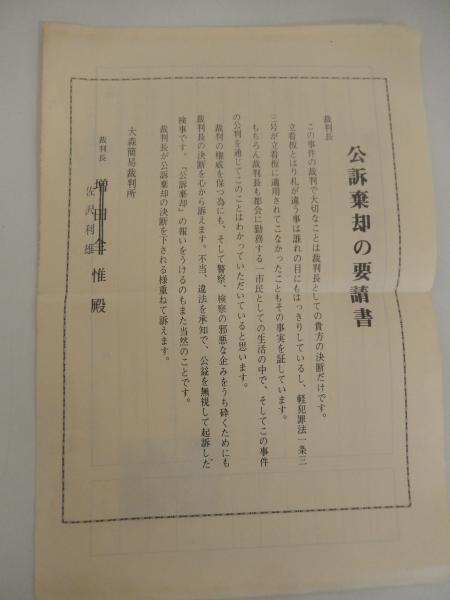 公訴棄却の要請書
裁判長
この事件の裁判で大切なことは裁判長としての貴方の決断だけです。
立看板とはり札が違う事は誰れの目にもはっきりしているし、軽犯罪法一条三
三号が立看板に適用されてこなかったこともその事実を証しています。
もちろん裁判長も都会に勤務する一市民としての生活の中で、そしてこの事件
の公判を通じてこのことはわかっていただいていると思います。
裁判の権威を保つ為にも、そして警察、検察の邪悪な企みをうち砕くためにも
裁判長の決断を心から訴えます。不当、違法を承知で、公益を無視して起訴した
検事です。『公訴棄却』の報いをうけるのもまた当然のことです。
裁判長が公訴棄却の決断を下される様重ねて訴えます。
大森簡易裁判所
裁判長 増田 惟殿
佐沢利雄